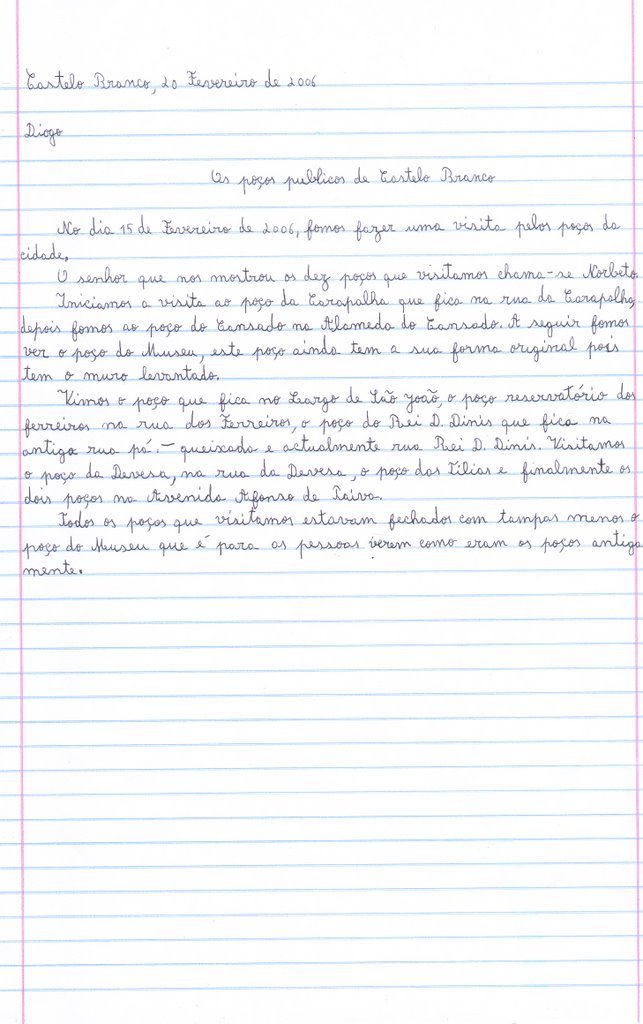 Castelo Branco, 20 Fevereiro de 2006
Diogo
Os poços publicos de Castelo Branco
No dia 15 de Fevereiro de 2006, fomos fazer uma visita pelos poços da
cidade.
O senhor que nos mostrou os dez poços que visitamos chama-se Norbeto.
Iniciamos a visita ao poço da Carapalha que fica na rua da Carapalha,
depois fomos ao poço do Cansado na Alameda do Cansado. A seguir fomos
ver o poço do Museu, este poço ainda tem a sua forma original pois
tem o muro levantado.
Vimos o poço que fica no Largo de São João, o poço reservatório dos
ferreiros na rua dos Ferreiros, o poço do Rei D. Dinis que fica na
antiga rua pá.-queixada e actualmente rua Rei D. Dinis. Visitamos
o poço da Devesa, na rua da Devesa, o poço das Tílias e finalmente os
dois poços na Avenida Afonso de Paiva.
Todos os poços que visitamos estavam fechados com tampas menos o
poço do Museu que é para as pessoas verem como eram os poços antiga
mente.